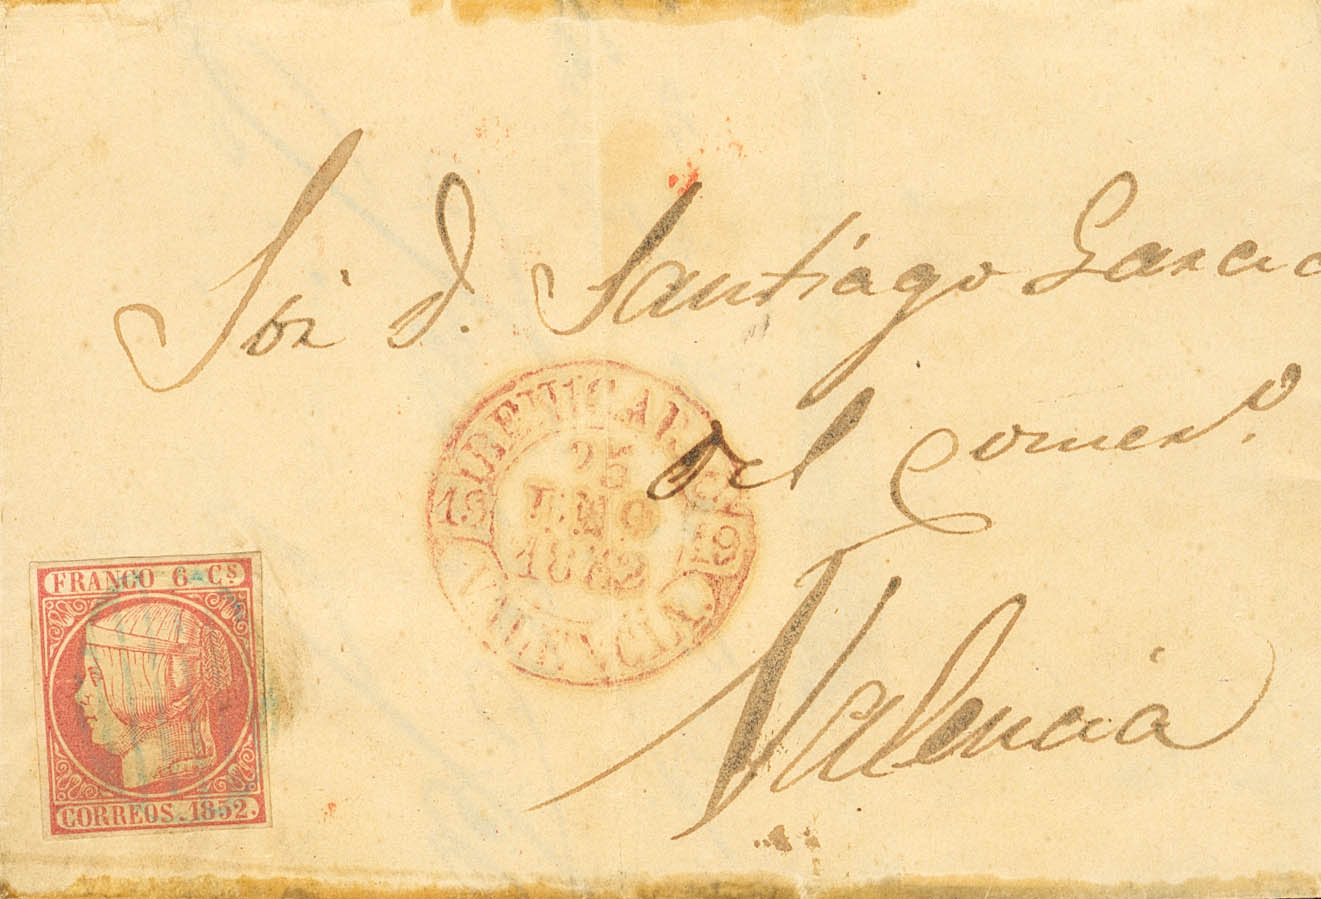 Sor. d. Santiago Garcia
del Comero.
Valencia
25
ENO
1852
19 19
VALENCIA.
FRANCO 6 Cs
CORREOS. 1852.